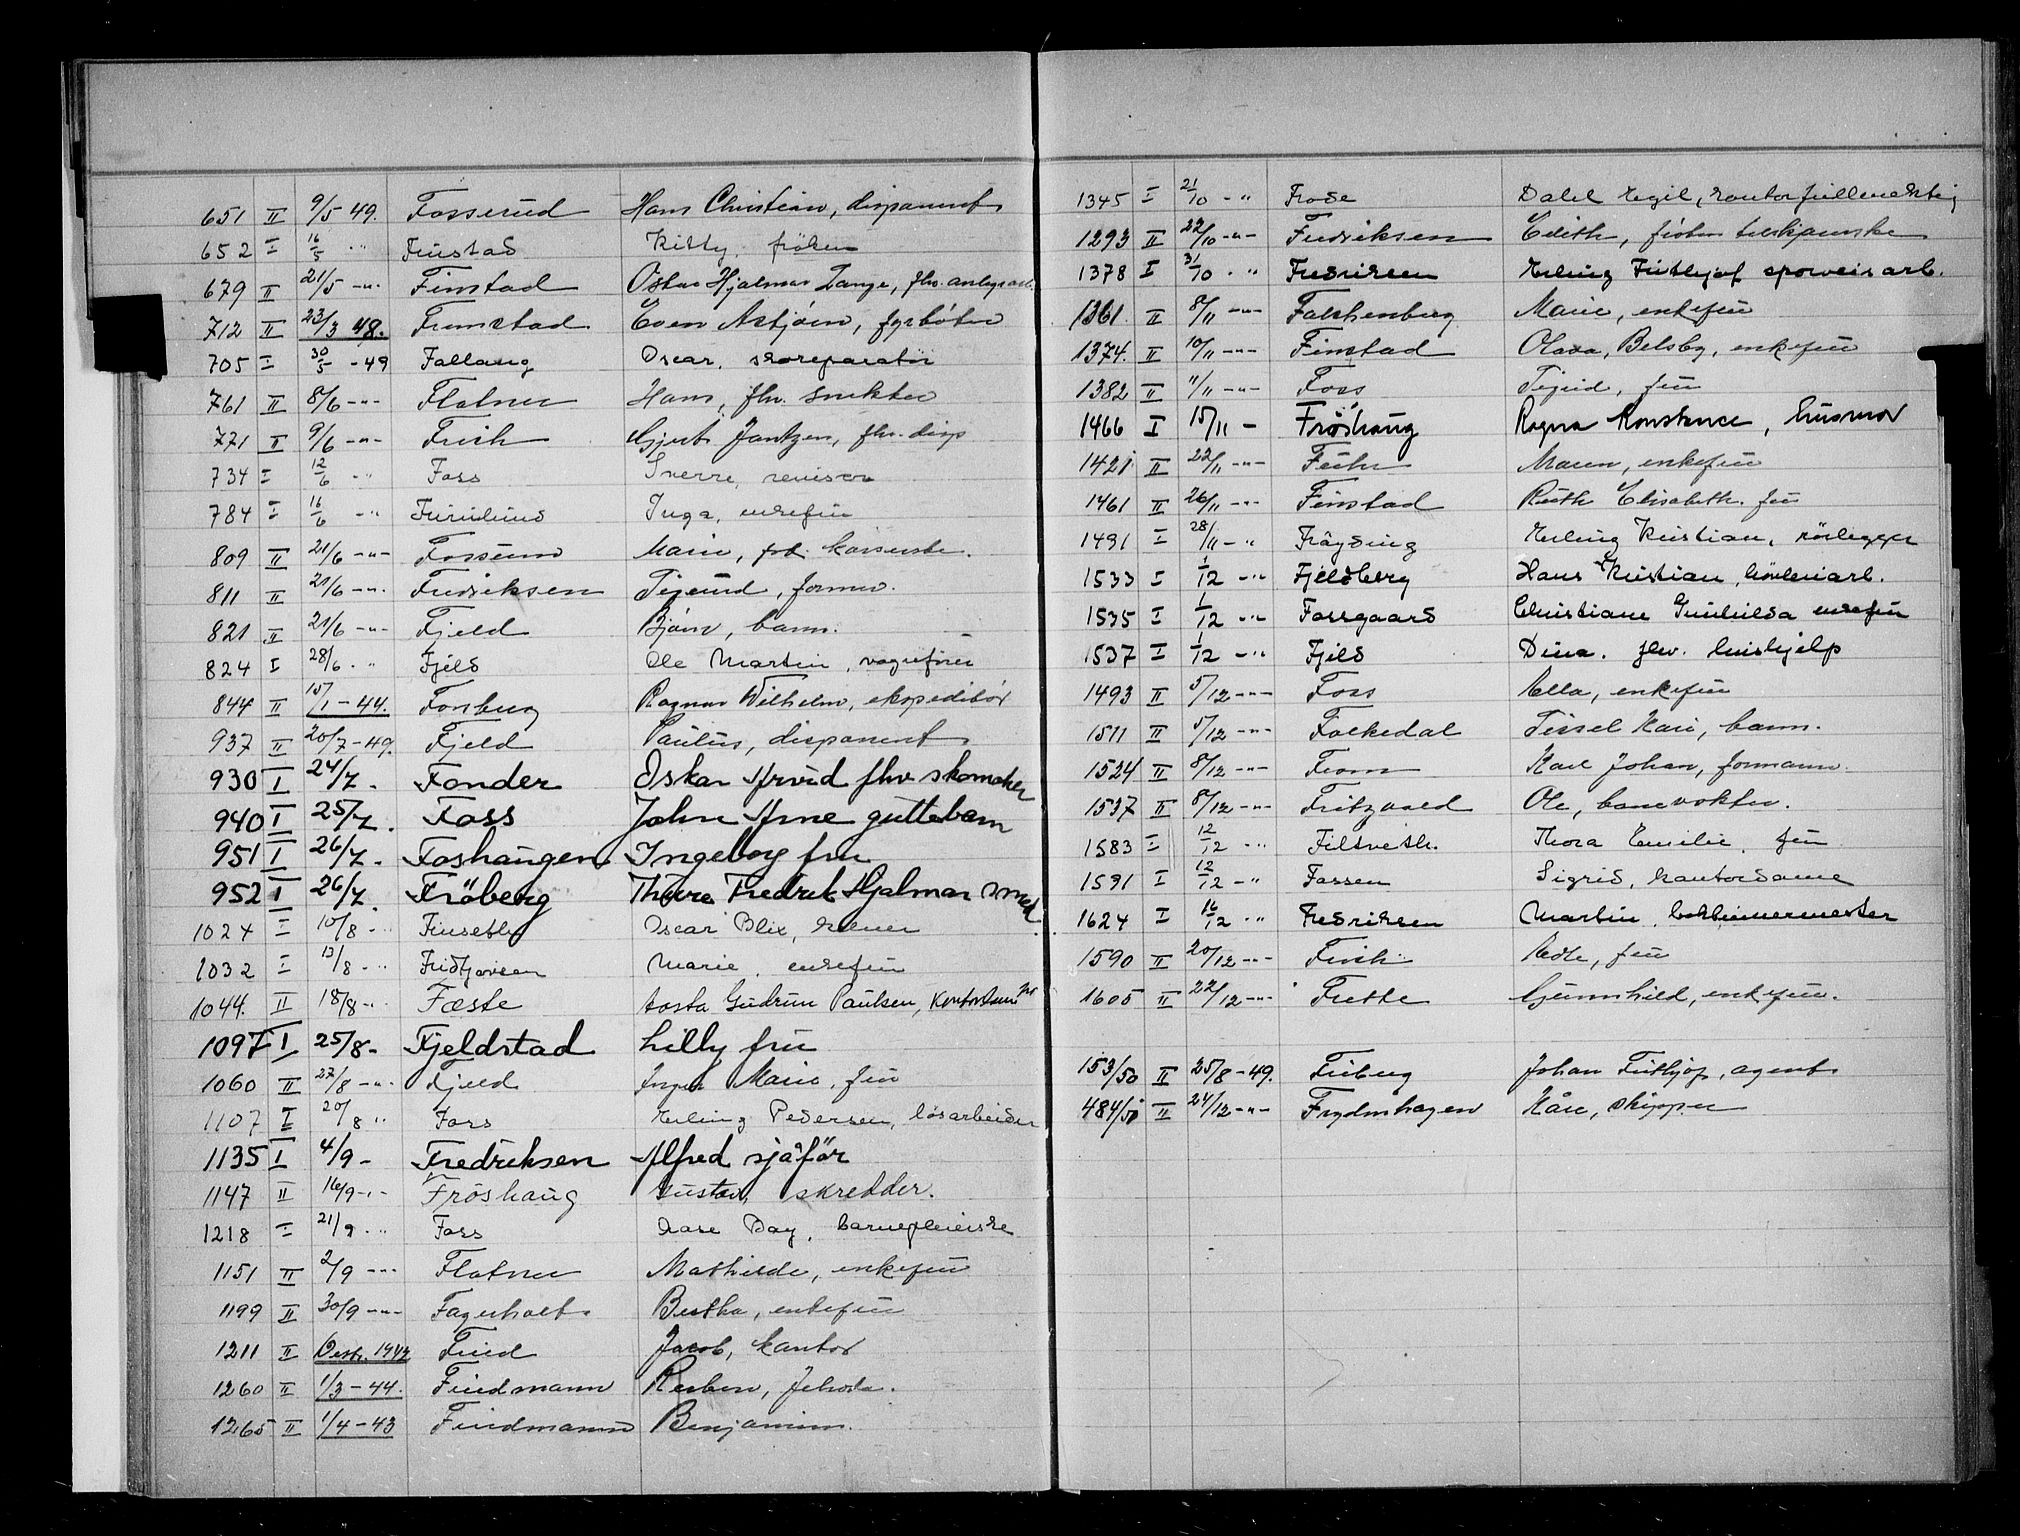 651 II 9/5 49. Fosserud Hans Christian, disponent
652 I 16/5 " Furstad Kitty, frøken
679 II 21/5 -"- Finstad Oskar Hjalmar Lange, fhv. anlegsarb.
712 II 23/3 48. Fremstad Even Astjørn, fyrbøter
705 I 30/5 -49 Fallang Oscar, skoreparatør
761 II 8/6 -"- Flatner Hans, fhv. snekker
771 II 9/6 -"- Frich Gjert Jantzen, fhv. disp
734 I 12/6 -" Foss Sverre, revisor
784 I 16/6 -" Furulund Inga, enkefru
809 II 21/6 -"- Fossum Marie, frk. kasserske.
811 II 21/6 -"- Fredriksen Sigurd, former.
821 II 21/6 -"- Fjeld Bjørn, barn.
824 I 28/6 . " Fjeld Ole Martin, vognfører
844 II 15/1 -44. Forsberg Ragnar Wilhelm, ekspeditør
937 II 20/7 -49. Fjeld Paulus, disponent
930 I 24/7. Fonder Oskar Arvid fhv skomaker
940 I 25/7. Foss John Arne guttebarn
951 I 26/7. Foshaugen Ingeborg fru
952 I 26/7. Frøberg Thore Fredrik Hjalmar smed
1024 I 10/8 - " Oscar Blix,
1032 I 13/8 - " Fridtjovsen Marie, enkefru
1044. II 18/8 -" Fæste Aasta Gudrun Paulsen, Kontordame
1097 I 25/8 - Fjeldstad Lilly fru
1060 II 27/8 -"- Fjeld Inger Marie, fru
1107 I 20/8 " Foss Erling Pedersen, løsarbeider
1135 I 4/9 - Fredriksen Alfred sjåfør
1147 II 16/9 -"- Frøshaug Gustav, skredder.
1218 I 21/9 " Foss Aase Dag, barnepleierske
1151 II 2/9 -"- Flatner Mathilde, enkefru
1199 II 30/9 -"- Fagerholt Bertha, enkefru
1211 II 1942 Fried Jacob, kantor
1260 II 1/3 -44. Friedmann Ruben, Jehuda.
1265 II 1/4 -43 Friedmann Benjamin.
1345 I 21/10 - " Frode Dalel Egil, kontorfullmektig
1293 II 22/10 -"- Fredriksen Edith, frøken
1378 I 31/10 . " Fredriksen Erling Frithjof sporveisarb.
1361. II 8/11 -"- Falchenberg Marie, enkefru
1374. II 10/11 -"- Finstad Olava, Belsby, enkefru
1382 II 11/11 -"- Foss Sigrid, fru
1466 I 15/11 - Frøshaug Ragna Konstance, husmor
1421 II 22/11 -"- Fuhr Maren, enkefru
1461 II 26/11 -"- Finstad Ruth Elisabeth. fru
1491 I 28/11 - " Frøysing Erling Kristian, rørlegger
1533 I 1/12 - " Fjeldberg Hans Kristian,
1535 I 1/12 - " Fossgaard Christiane Gunhilda enkefru
1537 I 1/12 - " Fjeld Dina. fhv. hushjelp
1493 II 5/12 -"- Foss Ella, enkefru
1511 II 5/12 -"- Folkedal Sissel Kari, barn.
1524 II 8/12 -"- From Karl Johan, formann.
1537 II 8/12 -"- Fritzvold Ole, banevokter.
1583 I 12/12 - " Filtveth. Thora Emilie, fru
1591 I 12/12 - " Fossen Sigrid, kontordame
1624 I 16/12 . " Fredriksen Martin,
1590 II 20/12 -"- Frich fru
1605 II 22/12 -"- Frette Gunnhild, enkefru.
153/50 II 25/8 -49. Friberg Johan Frithjof, agent
484/50 II 24/12 -"- Frydenhagen Kåre, skipper